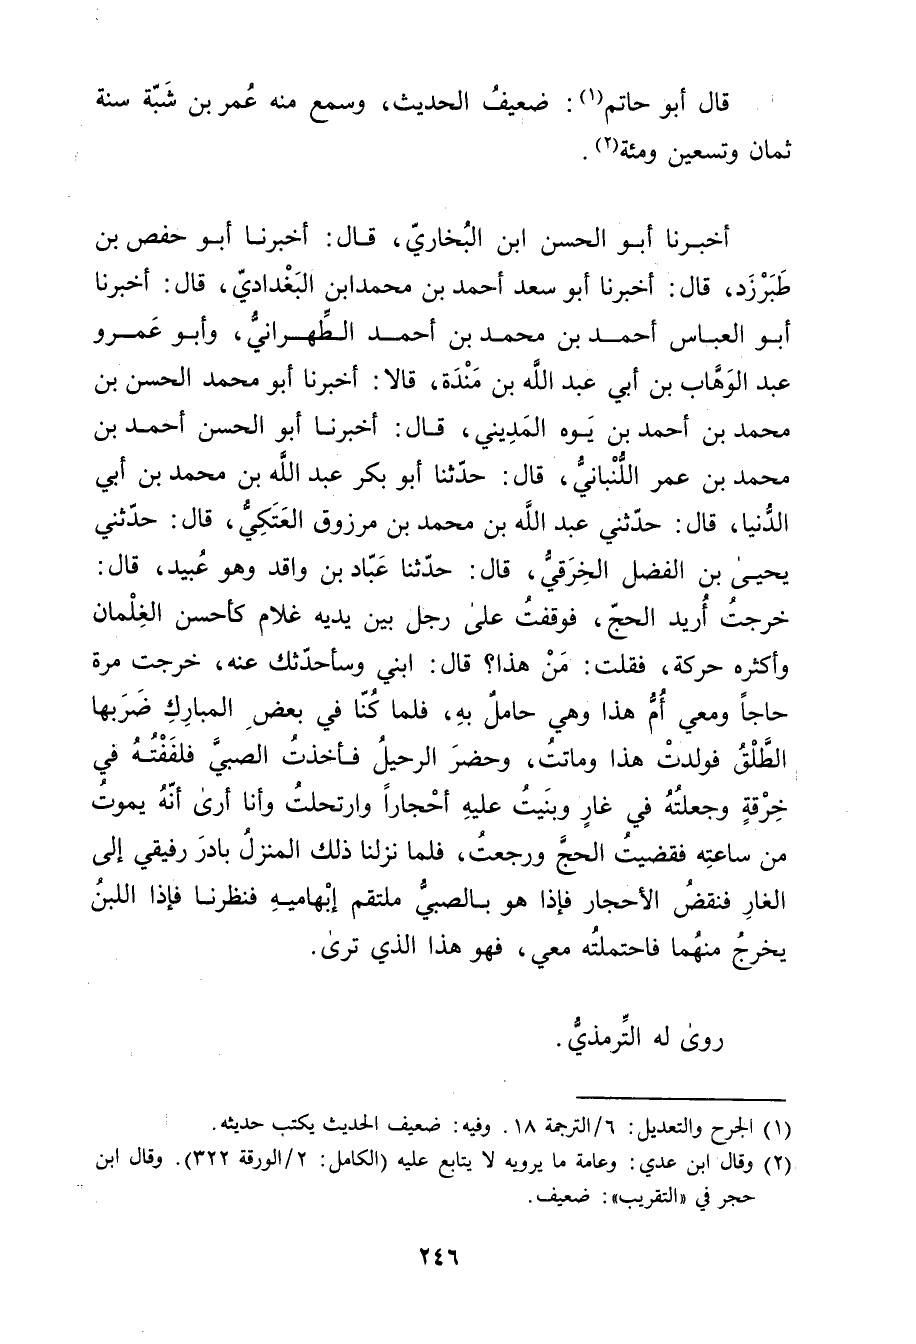 قال أبو حاتم(١): ضعيفُ الحديث، وسمع منه عُمر بن شَبَّة سنة
ثمان وتسعين ومئة(٢).
أخبرنا أبو الحسن ابن البُخاريّ، قال: أخبرنا أبو حفص بن
طَبَرْزَد، قال: أخبرنا أبو سعد أحمد بن محمدابن البَغْداديّ، قال: أخبرنا
أبو العباس أحمد بن محمد بن أحمد الطِّهرانيُّ، وأبو عَمرو
عبد الوَهَّاب بن أبي عبد اللَّه بن مَنْدَة، قالا: أخبرنا أبو محمد الحسن بن
محمد بن أحمد بن يَوه المَدِيني، قال: أخبرنا أبو الحسن أحمد بن
محمد بن عمر اللُّنْبانيُّ، قال: حدّثنا أبو بكر عبد اللَّه بن محمد بن أبي
الدُّنيا، قال: حدّثني عبد اللَّه بن محمد بن مرزوق العَتَكِيُّ، قال: حدّثني
يحيىٰ بن الفضل الخِرَقيُّ، قال: حدّثنا عَبّاد بن واقد وهو عُبيد، قال:
خرجتُ أُريد الحجّ، فوقفتُ علىٰ رجل بين يديه غلام كأحسن الغِلْمان
وأكثره حركة، فقلت: مَنْ هذا؟ قال: ابني وسأحدّثك عنه، خرجت مرة
حاجاً ومعي أُمُّ هذا وهي حاملٌ بهِ، فلما كُنّا في بعضِ المبارِكِ ضَرَبها
الطَّلْقُ فولدتْ هذا وماتتُ، وحضرَ الرحيلُ فأخذتُ الصبيَّ فلفَفْتُهُ في
خِرْقةٍ وجعلتُهُ في غارٍ وبنَيتُ عليهِ أحْجاراً وارتحلتُ وأنا أرىٰ أنّهُ يموتُ
من ساعتِه فقضيتُ الحجَّ ورجعتُ، فلما نزلنا ذلك المنزلُ بادرَ رفيقي إلى
الغارِ فنقضُ الأحجار فإذا هو بالصبيُّ ملتقم إبْهاميهِ فنظرنا فإذا اللبنُ
يخرجُ منهُما فاحتملتُه معي، فهو هذا الذي ترىٰ.
روىٰ له التِّرمذيُّ.
(١) الجرح والتعديل: ٦/الترجمة ١٨. وفيه: ضعيف الحديث يكتب حديثه.
(٢) وقال ابن عدي: وعامة ما يرويه لا يتابع عليه (الكامل: ٢/الورقة ٣٢٢). وقال ابن
حجر في «التقريب»: ضعيف.
٢٤٦